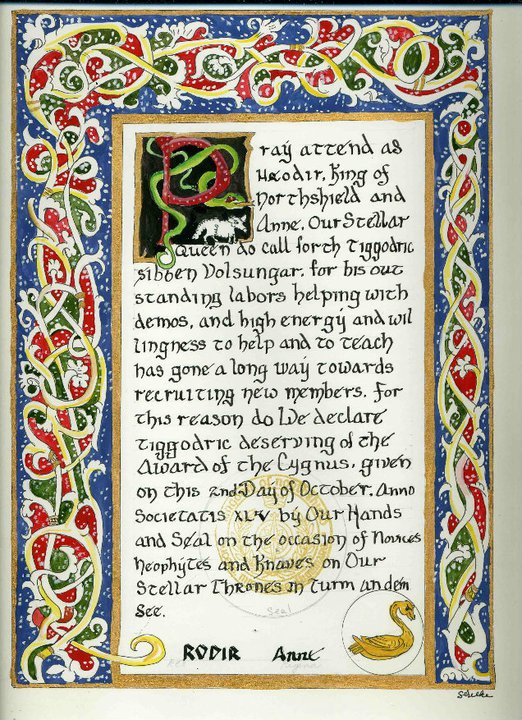 Pray attend as
Hrodir, King of
Northshield and
Anne, Our Stellar
Queen do call forth Tiggodric
sibben Volsungar, for his out
standing labors helping with
demos, and high energy and wil
lingness to help and to teach
has gone a long way towards
recruiting new members. For
this reason do We declare
Tiggodric deserving of the
Award of the Cygnus, given
on this 2nd Day of October, Anno
Societatis XLV by Our Hands
and Seal on the occasion of Novices
Neophytes and Knaves on Our
Stellar Thrones in Turm an dem
See.
Seal
RODIR Anne